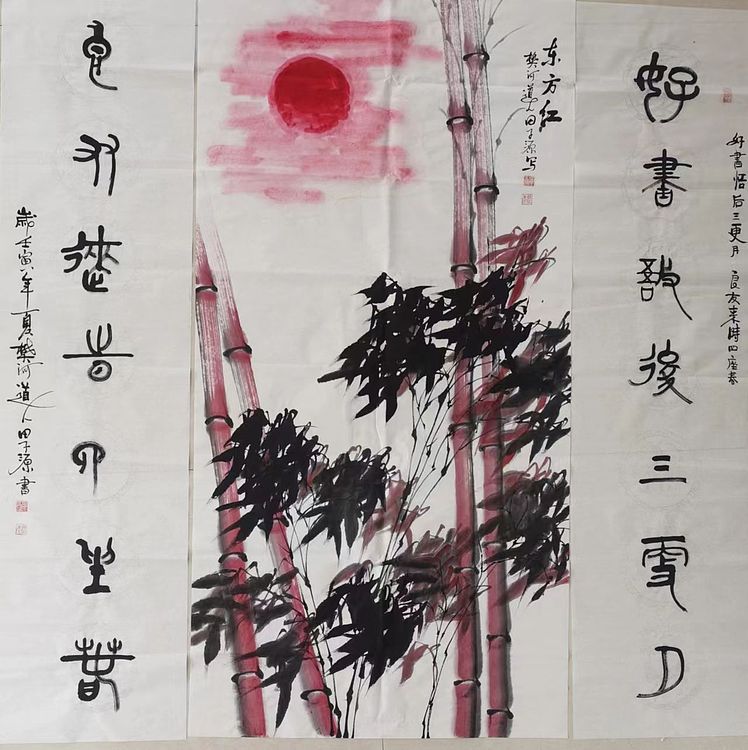 好書悟后三更月 良友来时四座春
好書悟後三更月
东方红
樊河道人田子源写
良友來時四座春
歲壬寅年夏樊河道人田子源書